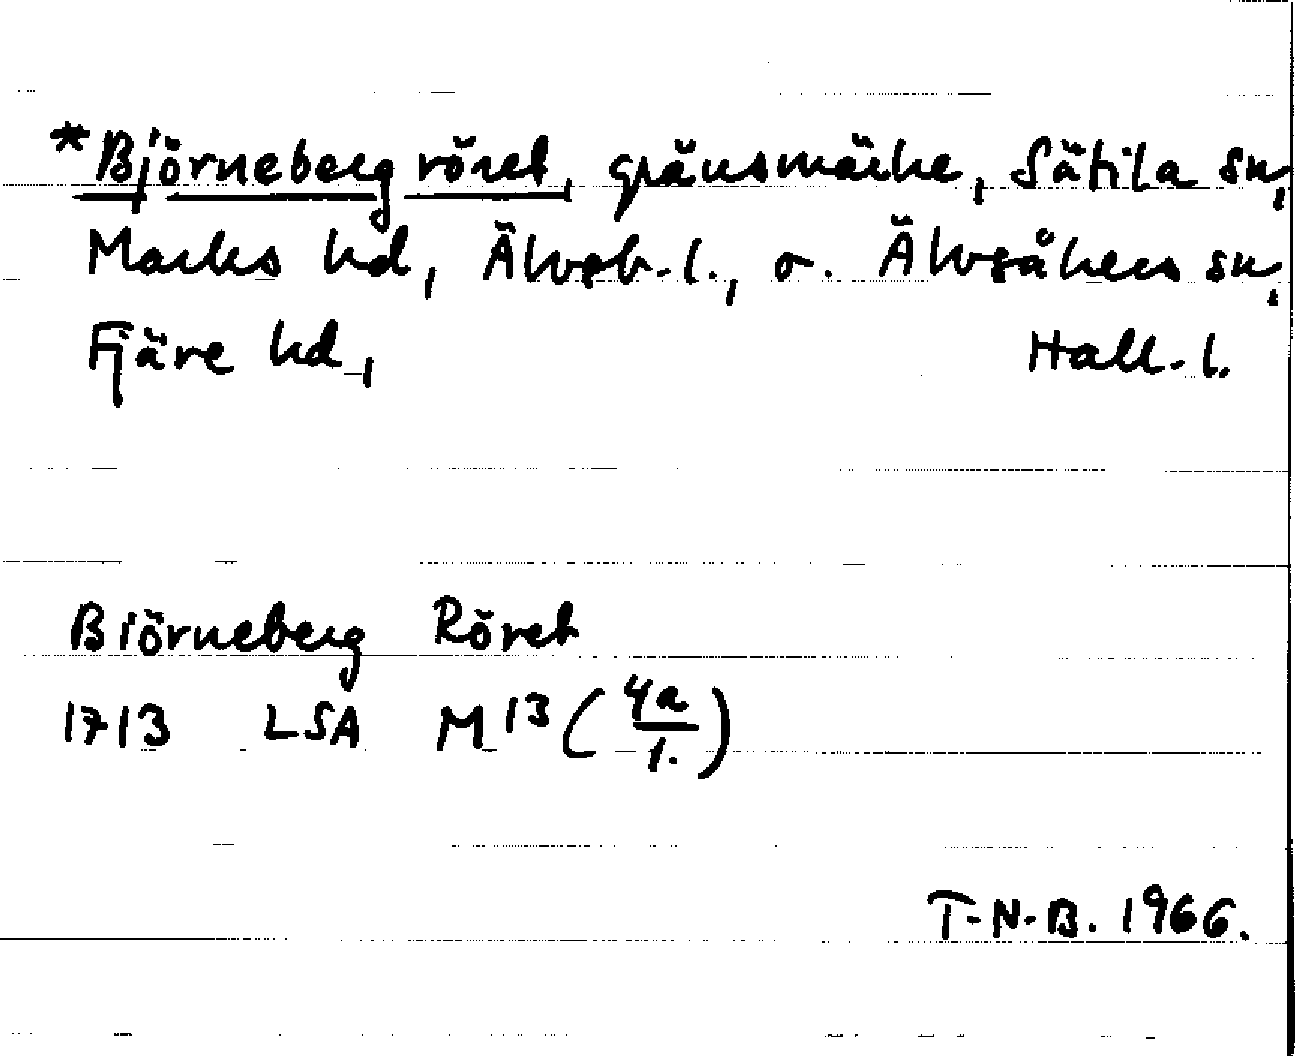 *Björneberg röret, gränsmärke, Sätila sn,
Marks hd, Älvsb. l., o. Älvsåkers sn,
Fjäre hd, Hall. l.
Biörneberg Röret
1713 LSA M13 (4a/1.)
T-N-B. 1966.